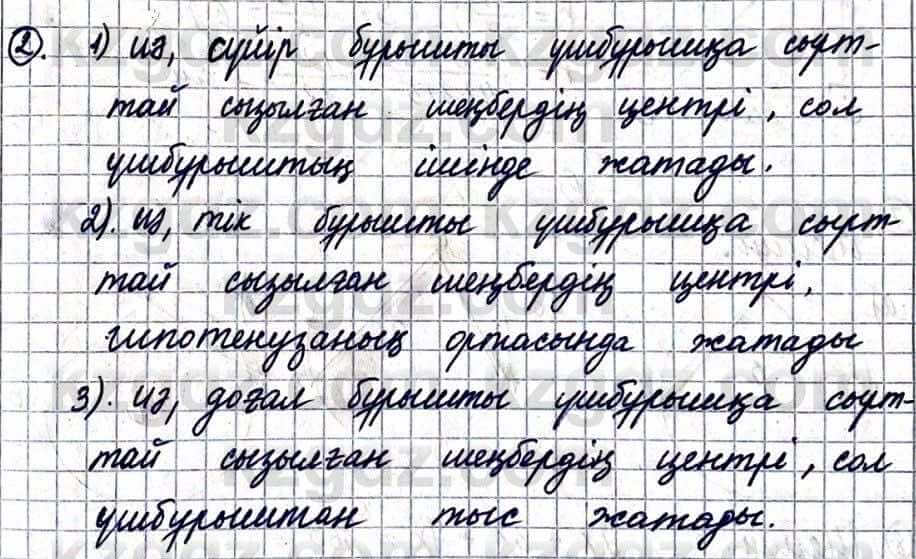 2. 1) из, сүйір бұрышты үшбұрышқа сырт-
тай сызылған шеңбердің центрі, сол
үшбұрыштың ішінде жатады.
2). из, тік бұрышты үшбұрышқа сырт-
тай сызылған шеңбердің центрі,
гипотенузаның ортасында жатады
3). из, доғал бұрышты үшбұрышқа сырт-
тай сызылған шеңбердің центрі, сол
үшбұрыштан тыс жатады.